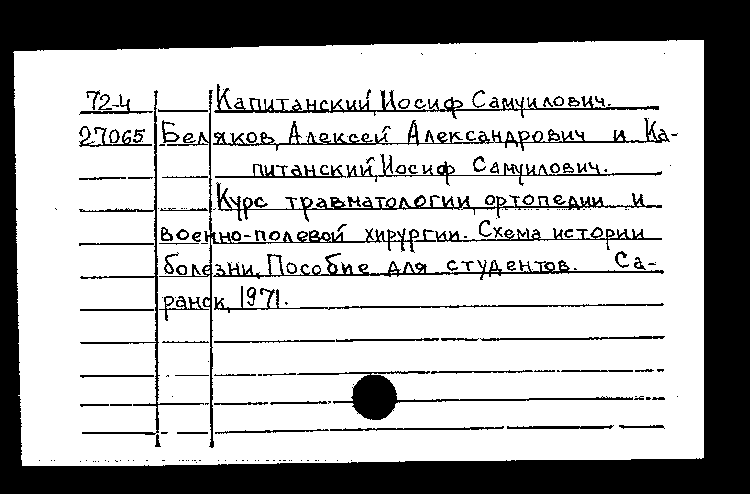 72-4 Капитанский, Иосиф Самуилович.
27065 Беляков, Алексей Александрович и Ка-
питанский, Иосиф Самуилович.
Курс травматологии, ортопедии и
военно-полевой хирургии. Схема истории
болезни. Пособие для студентов. Са-
ранск, 1971.